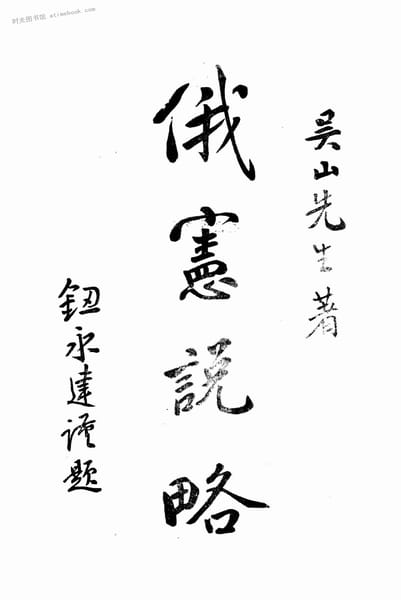 时光图书馆 etimebook.com
吴山先生著
俄憲説略
鈕永建謹題